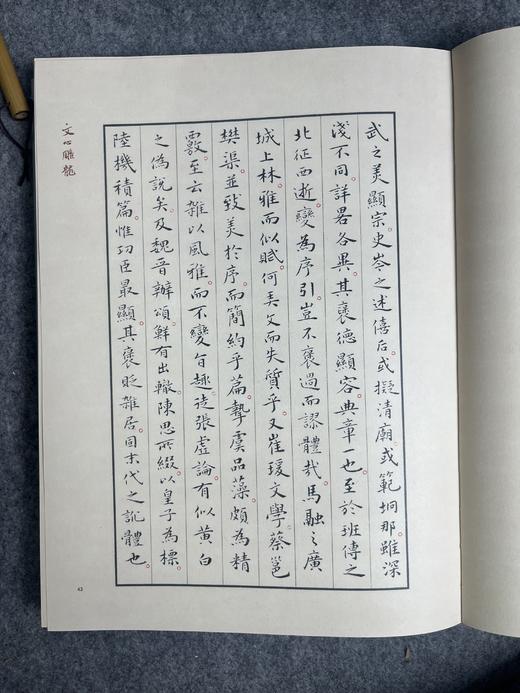 武之美顯宗。史岑之述僖后。或擬清廟。或範坰那。雖深
淺不同。詳畧各異。其褒德顯容。典章一也。至於班傅之
北征西逝。變為序引。豈不褒過而謬體哉。馬融之廣
城上林。雅而似賦。何弄文而失質乎。又崔瑗文學。蔡邕
樊渠。並致美於序。而簡約乎篇。摯虞品藻。頗為精
覈。至云雜以風雅。而不變旨趣。徒張虛論。有似黃白
之偽說矣。及魏晉辨頌。鮮有出轍。陳思所綴。以皇子為標。
陸機積篇。惟功臣最顯。其褒貶雜居。固末代之訛體也。
文心雕龍
43